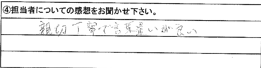 ④担当者についての感想をお聞かせ下さい。
親切丁寧で言葉遣いが良い